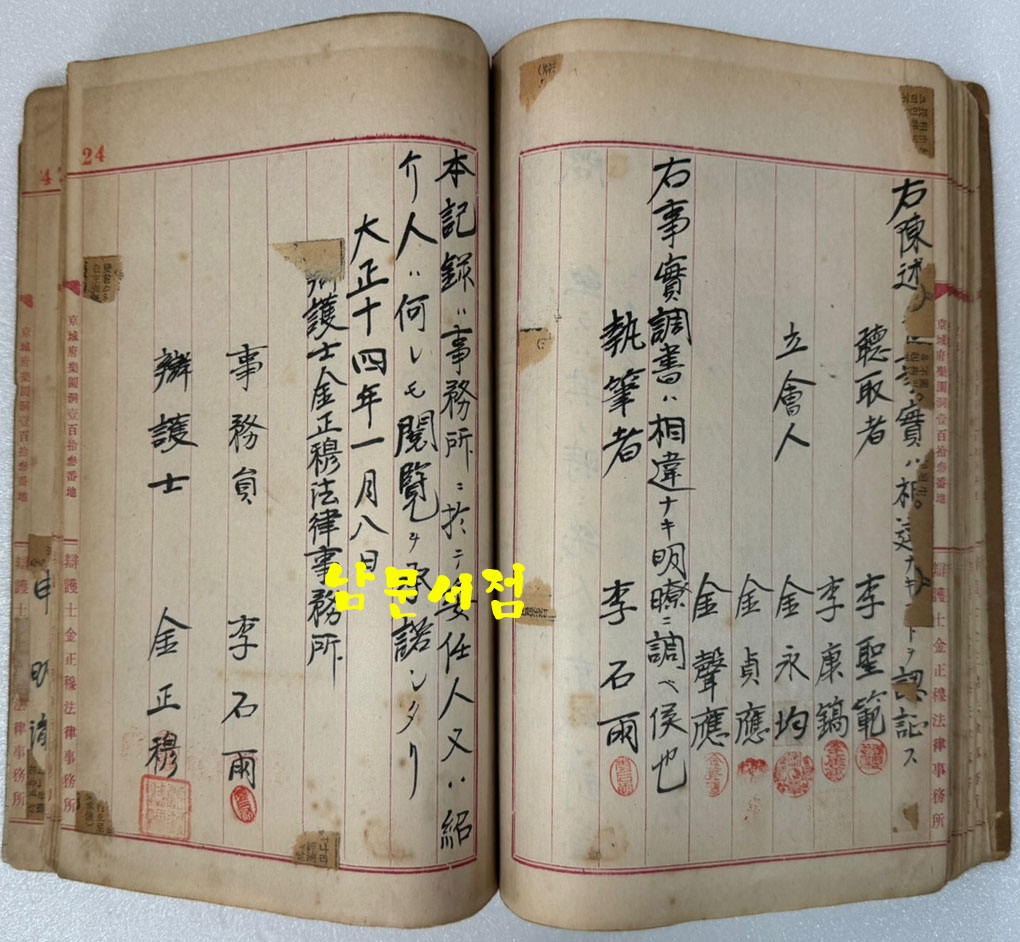 右陳述 事實ハ相違ナキコトヲ認証ス
聽取者 李聖範
李康鎬
立會人 金永均
金貞應
金聲應
右事實調書ハ相違ナキ明瞭ニ調ベ候也
執筆者 李石雨
京城府樂園洞壹百拾參番地 辯護士金正穆法律事務所
24
本記録ハ事務所ニ於テ委任人又ハ紹
介人ハ何レモ閲覧ヲ承諾シタリ
大正十四年一月八日
辯護士金正穆法律事務所
事務員 李石雨
辯護士 金正穆
京城府樂園洞壹百拾參番地 辯護士金正穆法律事務所
京城府樂園洞壹百拾參番地 辯護士 法律事務所
남문서점